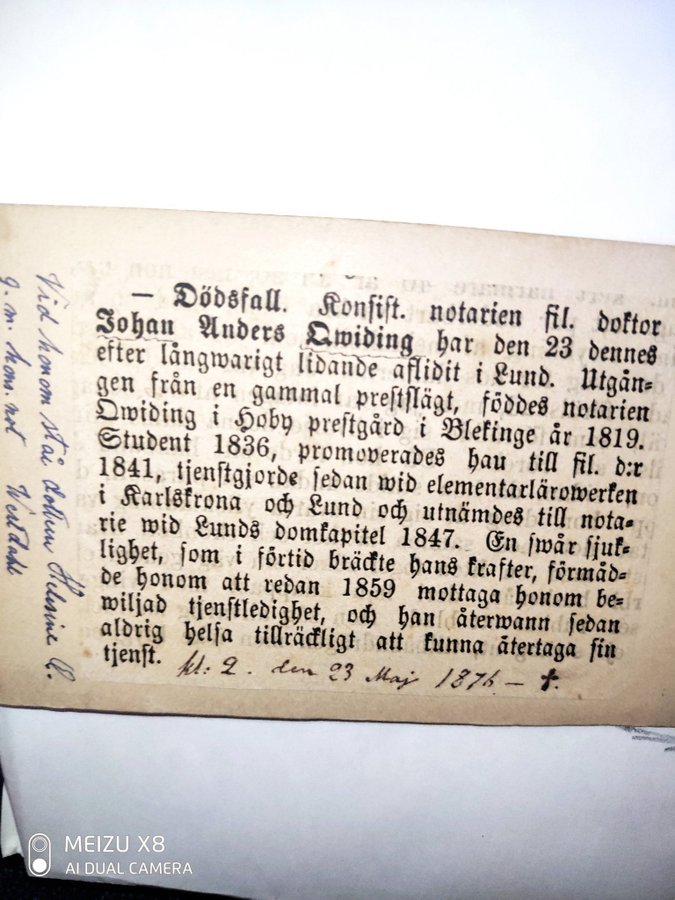 — Dödsfall. Konsist. notarien fil. doktor
Johan Anders Qwiding har den 23 dennes
efter långwarigt lidande aflidit i Lund. Utgån-
gen från en gammal prestslägt, föddes notarien
Qwiding i Hoby prestgård i Blekinge år 1819.
Student 1836, promoverades hau till fil. d:r
1841, tjenstgjorde sedan wid elementarlärowerken
i Karlskrona och Lund och utnämdes till nota-
rie wid Lunds domkapitel 1847. En swår sjuk-
lighet, som i förtid bräckte hans krafter, förmåd-
de honom att redan 1859 mottaga honom be-
wiljad tjenstledighet, och han återwann sedan
aldrig helsa tillräckligt att kunna återtaga sin
tjenst.
kl: 2. den 23 Maj 1876 — †.
Vid honom stå dottern
g. m. kons. not
MEIZU X8
AI DUAL CAMERA